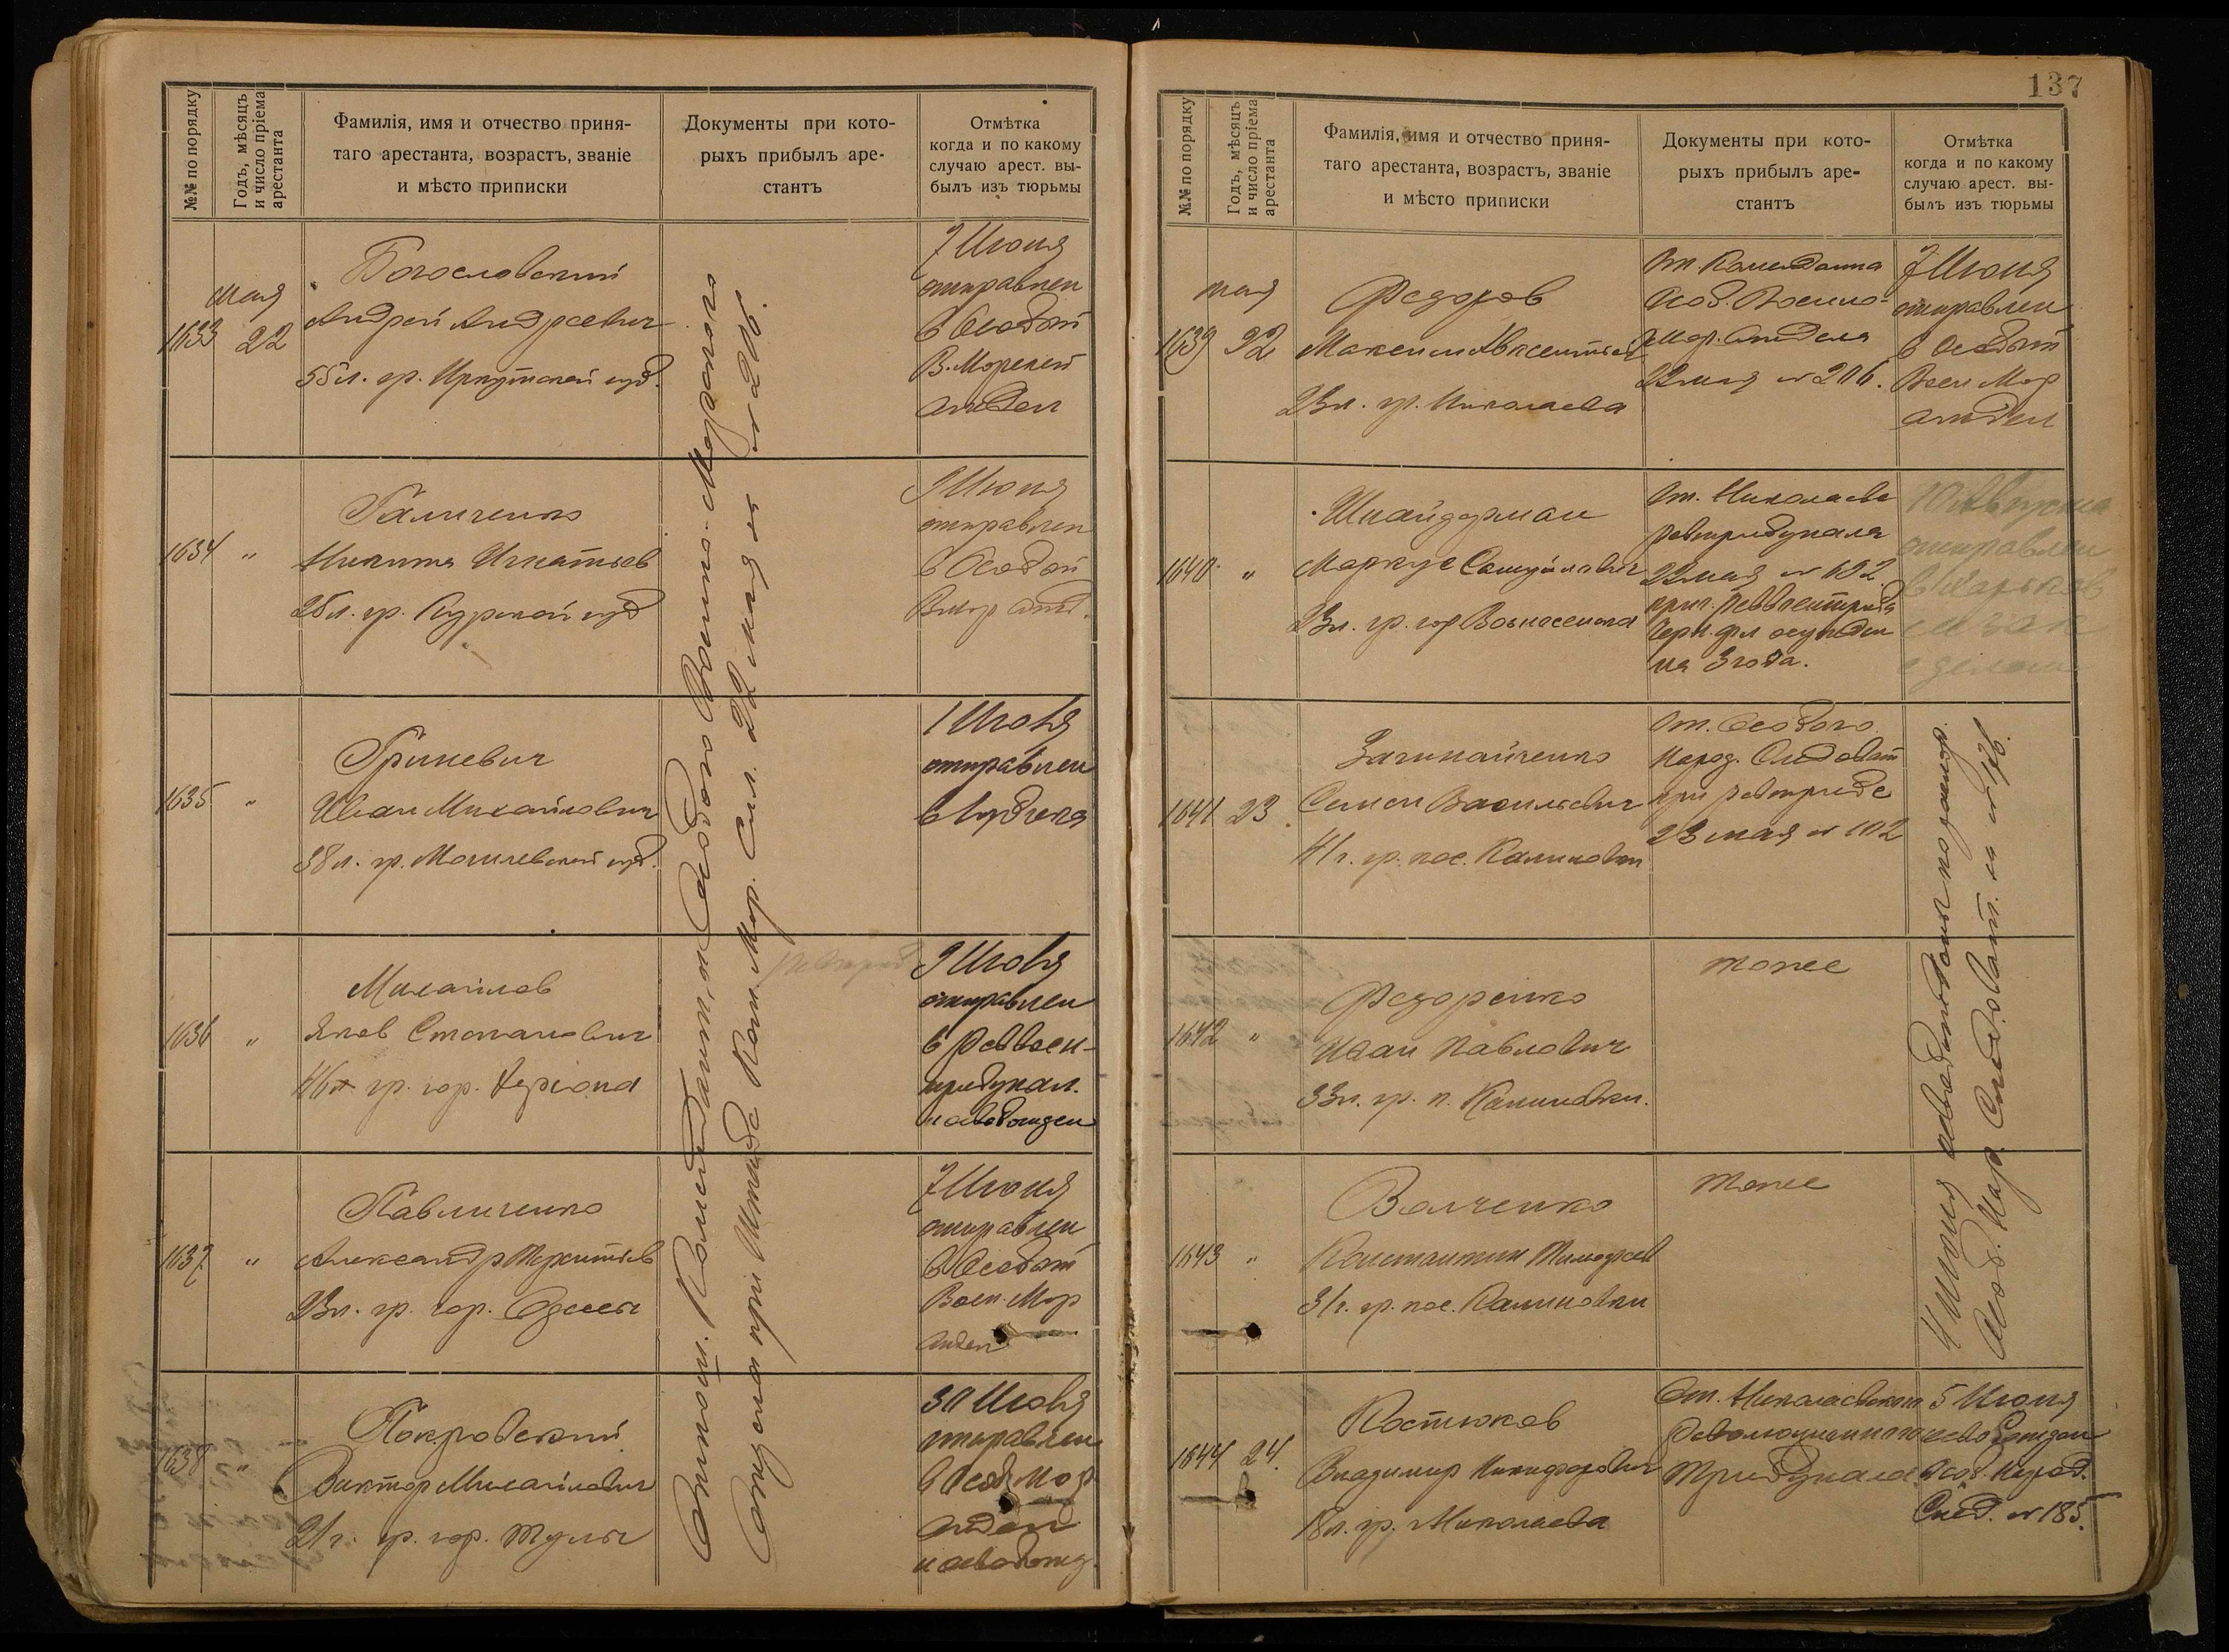 №№ по порядку
Годъ, мѣсяцъ
и число пріема
арестанта
Фамилія, имя и отчество приня-
таго арестанта, возрастъ, званіе
и мѣсто приписки
Документы при кото-
рыхъ прибылъ аре-
стантъ
Отмѣтка
когда и по какому
случаю арест. вы-
былъ изъ тюрьмы
1633
мая
22
Богословский
Андрей Андреевич
55 л. гр. Иркутской губ.
7 Июня
отправлен
в Особый
В. Морской
отдел
1634 "
Галиченко
Никита Игнатьев
25 л. гр. Курской губ
9 Июня
отправлен
в Особый
В мор отд.
1635 "
Гриневич
Иван Михайлович
38 л. гр. Могилевской губ.
1 Июля
отправлен
в
1636 "
Михайлов
Яков Степанович
46 л гр. гор. Херсона
9 Июля
отправлен
в Реввоен-
трибунал.
и освобожден
1637 "
Павличенко
Александр Терентьев
23 л. гр. гор. Одессы
7 Июня
отправлен
в Особый
Воен. Мор
отдел
1638 "
Покровский
Виктор Михайлович
21 г. гр. гор. Тулы
30 Июля
отправлен
в Особ Мор
отдел
и освобожд.
Отнош. Комендант, Особого Военно-Морского
при Штабе Ком. Мор. Сил. 22 мая № 206.
137
№№ по порядку
Годъ, мѣсяцъ
и число пріема
арестанта
Фамилія, имя и отчество приня-
таго арестанта, возрастъ, званіе
и мѣсто приписки
Документы при кото-
рыхъ прибылъ аре-
стантъ
Отмѣтка
когда и по какому
случаю арест. вы-
былъ изъ тюрьмы
1639
мая
22
Федоров
Максим Авксентьев
23 л. гр. Николаева
От. Коменданта
Особ. Военно-
Мор. Отдела
22 мая № 206.
7 Июня
отправлен
в Особый
Воен Мор
отдел
1640 "
Шнайдерман
Маркус Самуйлович
23 л. гр. гор Вознесенска
От. Николаевс
ревтрибунала
22 мая № 692
осужден
на 3 года.
10 Августа
отправлен
в Харьков
1641 23
Зачинайченко
Семен Васильевич
41 г. гр. пос. Калиновки
От. Особого
Народ. Следоват
при ревтрибе
23 мая № 102
1642 "
Федоренко
Иван Павлович
33 л. гр. п. Калиновки.
тоже
1643 "
Волченко
Константин Тимофеев
31 г. гр. пос. Калиновки
тоже
4 Июня освобожден по
Особ. Нар. Следоват. за № 176.
1644 24.
Костюков
Владимир Никифорович
18 л. гр. Николаева
От. Николаевского
Революционного
Трибунала
5 Июня
освобожден
Особ. Народ.
След. № 185.